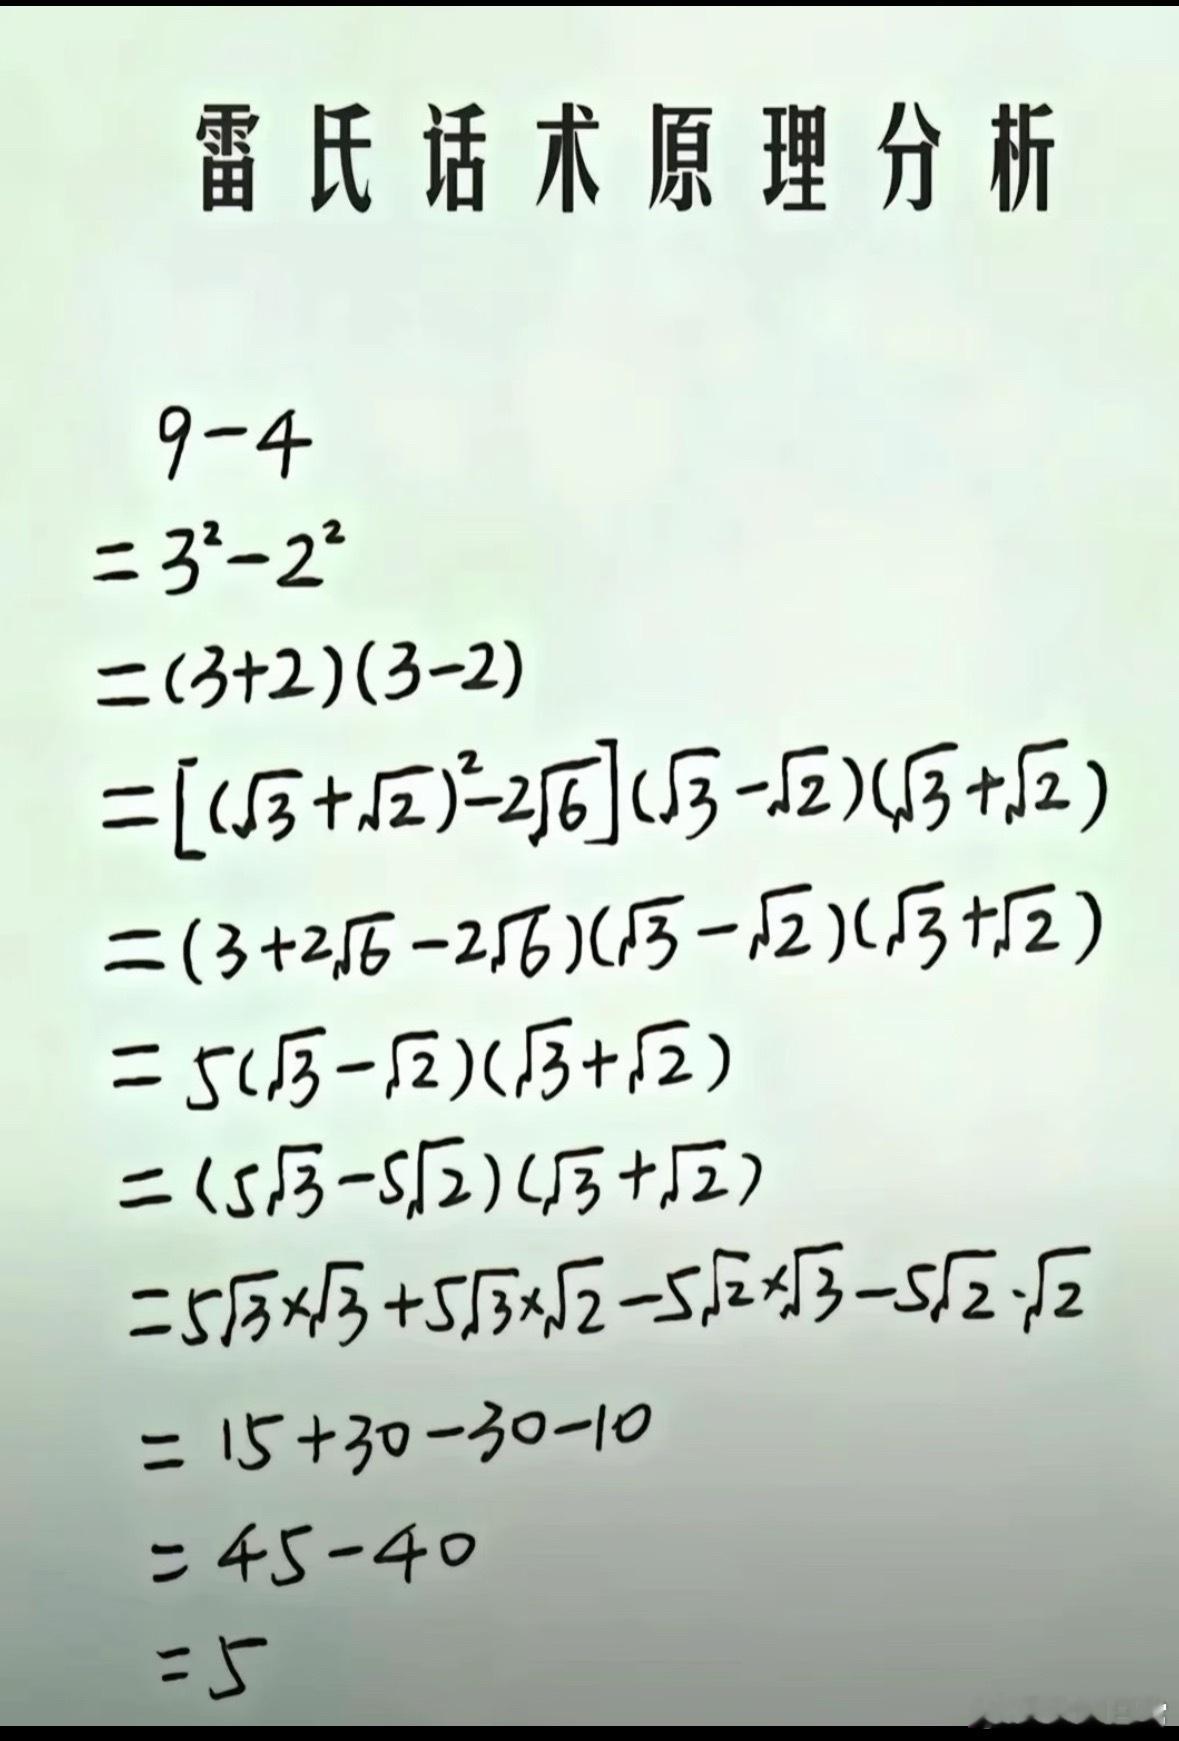 雷氏话术原理分析
9-4
=3²-2²
=(3+2)(3-2)
=[(√3+√2)²-2√6](√3-√2)(√3+√2)
=(3+2√6-2√6)(√3-√2)(√3+√2)
=5(√3-√2)(√3+√2)
=(5√3-5√2)(√3+√2)
=5√3×√3+5√3×√2-5√2×√3-5√2·√2
=15+30-30-10
=45-40
=5